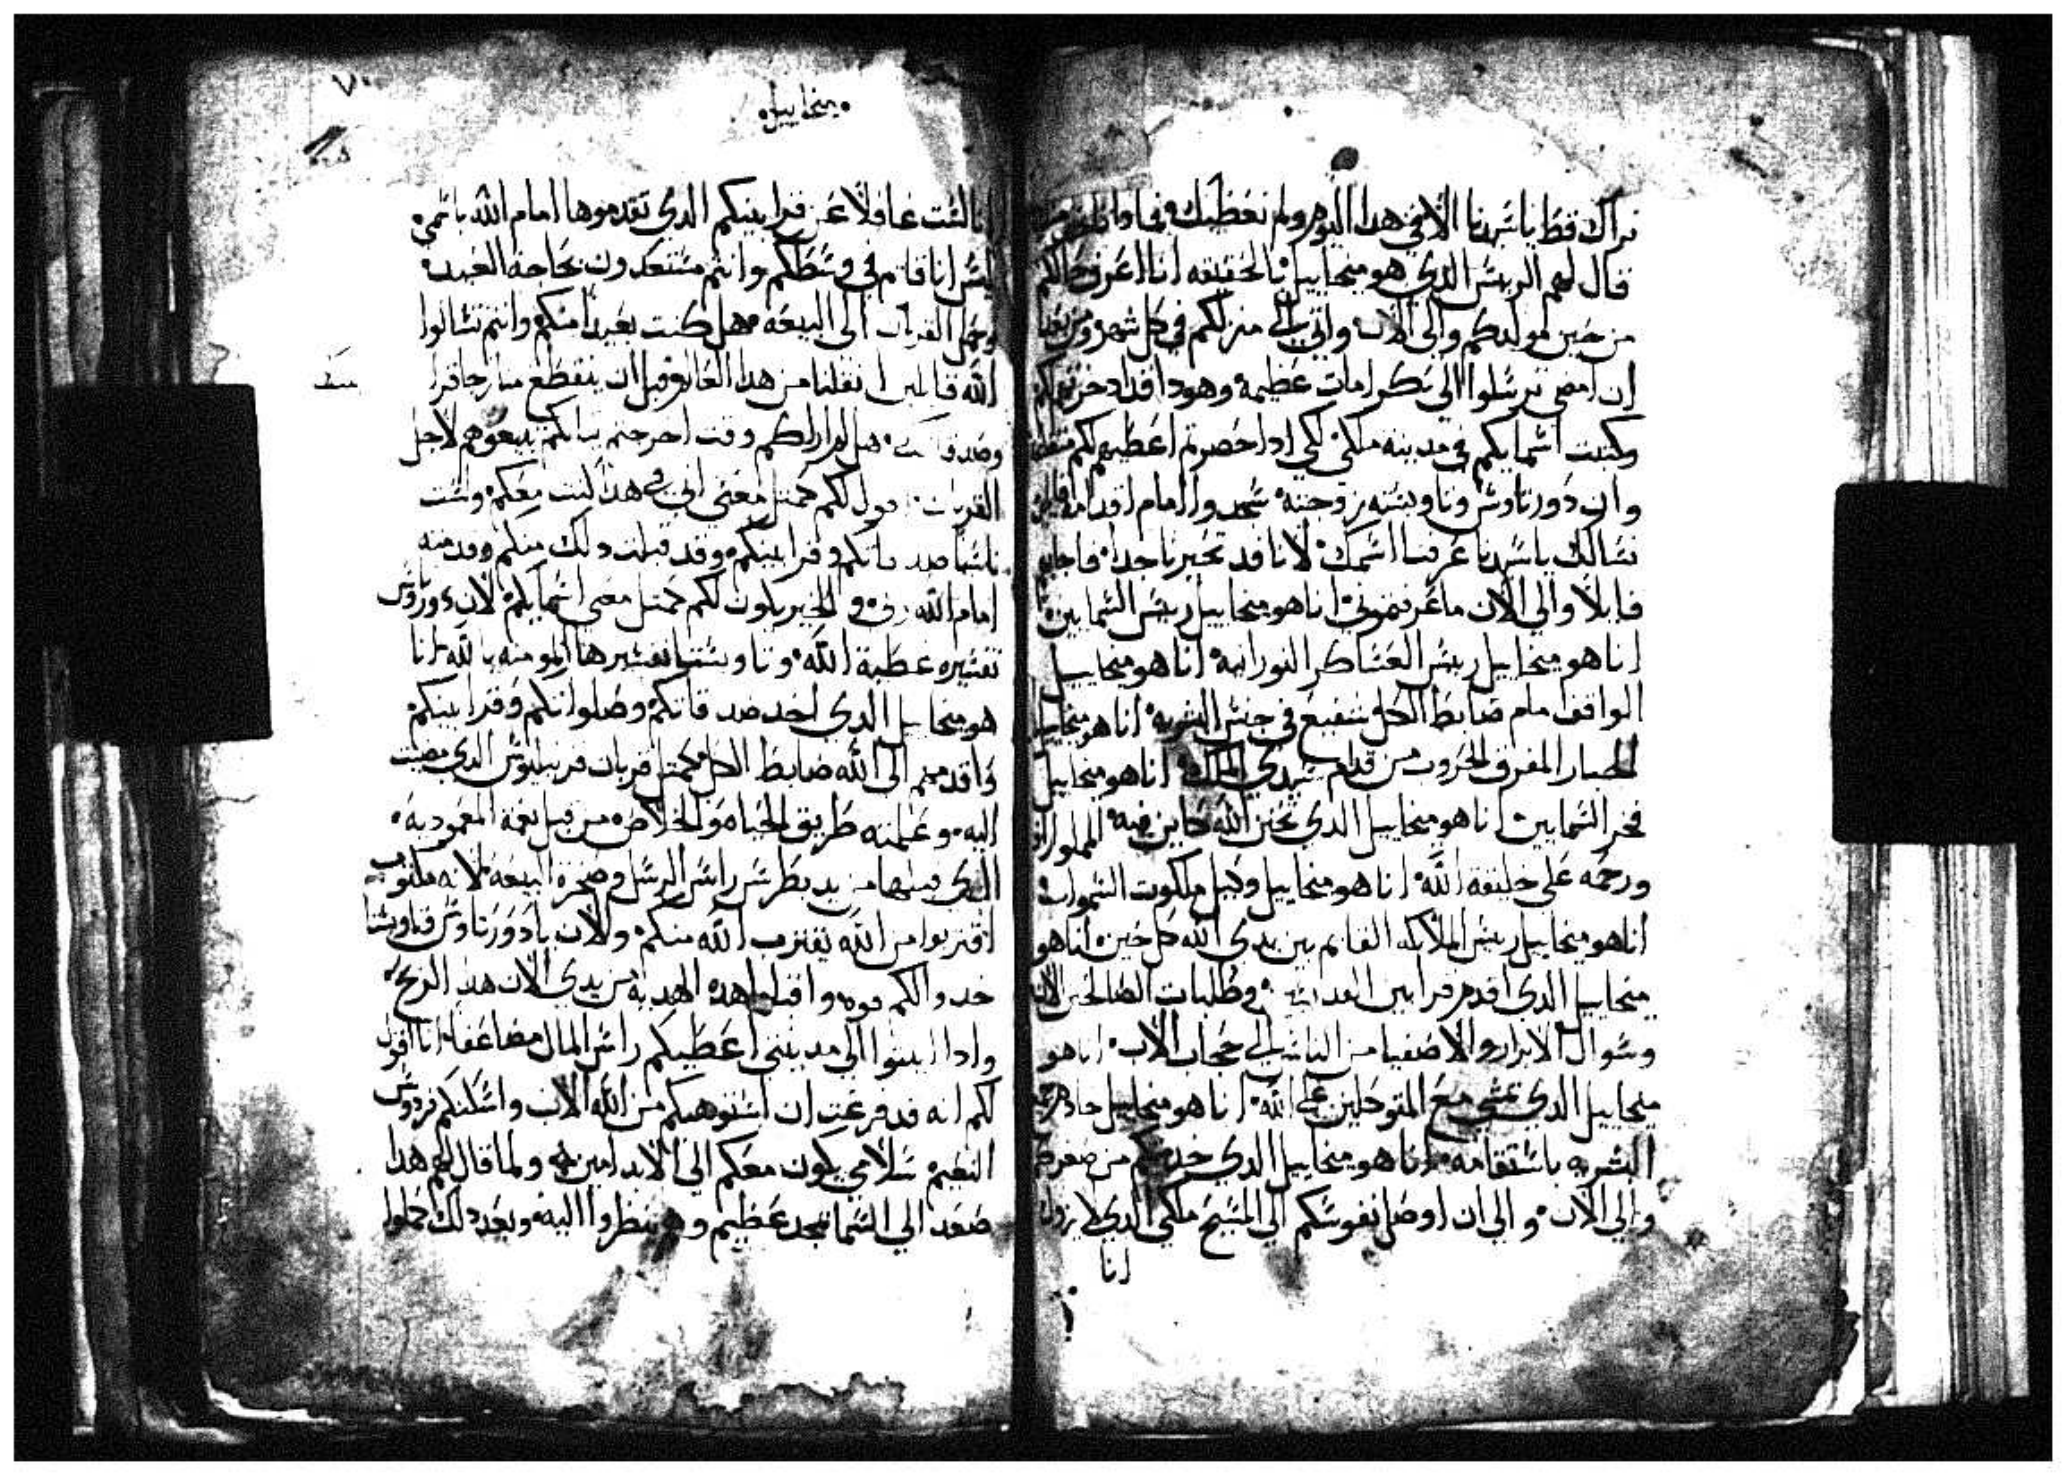 نراك قط ياسيدنا الا في هدا اليوم ولم نعطيك
قال لهم الريس الدي هو ميخاييل بالحقيقه انا اعرف حالكم
من حين مولدكم والي الان واتي الي منزلكم في كل شهر ومن بعد
ان امضي ترسلوا الي بكرامات عظيمة وهودا قد ادخرتهم لكم
وكتبت اسمايكم في مدينه ملكي لكي ادا حضرتم اعطيهم لكم
وان دورتاوس وتاوبسته زوجته سجدوا امام اقدامه قايلين
نسالك ياسيدنا عرفنا اسمك لانا قد تحيرنا جدا فاجابهم
قايلا والي الان ما عرفتموني انا هو ميخاييل ريس السمايين
انا هو ميخاييل ريس العساكر النورانيه انا هو ميخاييل
الواقف امام ضابط الكل يشفع في جنس البشريه انا هو ميخاييل
الجبار المفرق الحروب من قدام سيدي الملك انا هو ميخاييل
فخر السمايين انا هو ميخاييل الدي تحنن الله حاين فيه المملوا رافه
ورحمه علي خليقة الله انا هو ميخاييل وكيل ملكوت السموات
انا هو ميخاييل ريس الملايكه القايم بين يدي الله كل حين انا هو
ميخاييل الدي اقدم قرابين وطلبات الصالحين
وسوال الابرار والاصفيا من الناس الي حجاب الاب انا هو
ميخاييل الدي تمشي مع المتوكلين علي الله انا هو ميخاييل خادم
البشريه باستقامه انا هو ميخاييل الدي خدمتكم من صغركم
والي الان والي ان اوصل نفوسكم الي المسيح ملكي الدي لا يزول
انا
ميخاييل
٧٠
انا لست غافلا عن قرابينكم الدي تقدموها امام الله باسمي
ليس انا قايم في وسطكم وانتم مستعدون بحاجة العيد
وحمل القربان الي البيعه هل كنت بعيدا منكم وانتم تسالوا
الله قايلين انقلنا من هدا العالم قبل ان ينقطع منا رجا قرا
وصدقا هل لم اراكم وقت اخرجتم ثيابكم تبيعوهم لاجل
القربان اقول لكم كمتل معني اني في هدا كنت معكم ولست
ناسيا صدقاتكم وقرابينكم وقد قبلت دلك منكم وقدمته
امام الله والخير يكون لكم كمتل معني اسمايكم لان دورتاوس
تفسيره عطية الله وتاوبستا تفسيرها المومنه بالله انا
هو ميخاييل الدي اخد صدقاتكم وصلواتكم وقرابينكم
واقدمهم الي الله ضابط الكل كمتل قربان قرنيليوس الدي مضيت
اليه وعلمته طريق الحياه والخلاص من قبل نعمة المعموديه
الدي قبلها من يد بطرس راس الرسل وصخرة البيعه لانه مكتوب
اقتربوا من الله يقترب الله منكم والان يا دورتاوس وتاوبستا
خدوا لكم قوه واقبلوا هده الهديه من يدي الان هدا الربح
وادا اتيتوا الي مدينتي اعطيكم راس المال مضاعفا انا اقول
لكم انه قد فرغت ان استوهبكم من الله الاب واسكنكم فردوس
النعيم سلامي يكون معكم الي الابد امين ولما قال لهم هدا
صعد الي السما بمجد عظيم وهم ينظروا اليه وبعد دلك حملوا